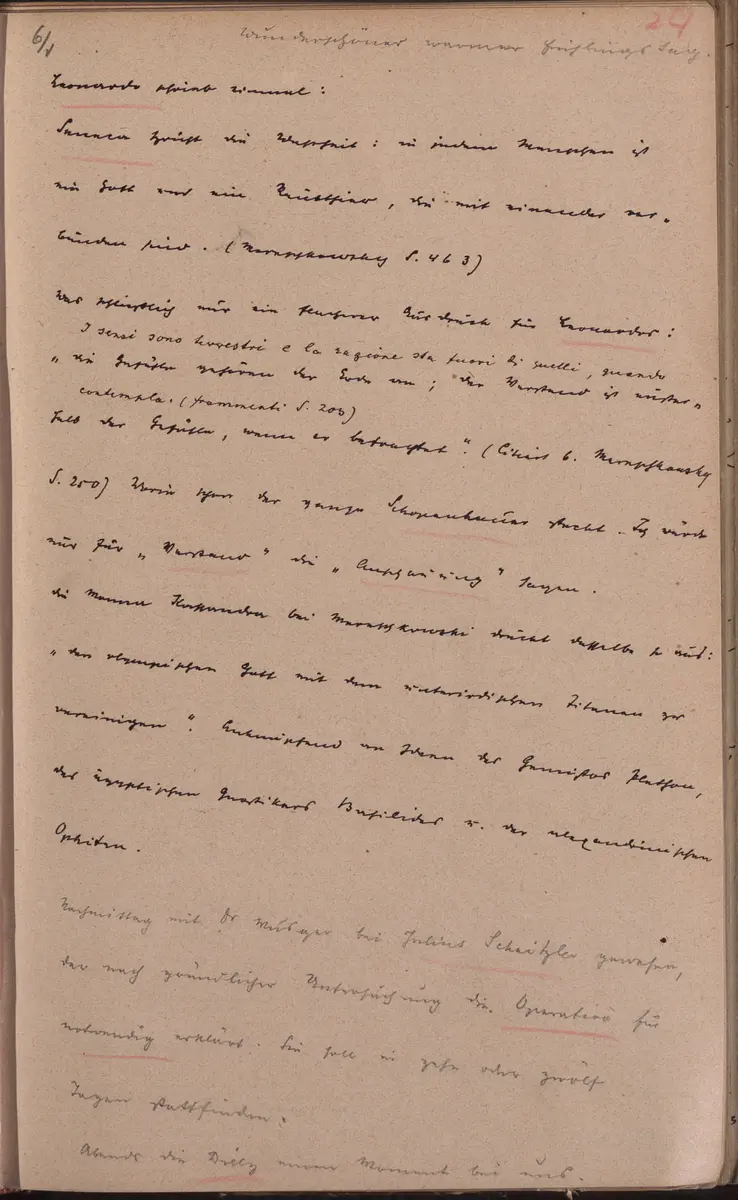 24
6/
Wunderschöner warmer Frühlingstag.
Leonardo schrieb einmal:
Seneca spricht die Wahrheit: in jedem Menschen ist
ein Gott und ein Raubthier, die mit einander ver-
bunden sind. (Mereschkowsky S. 463)
Was schließlich nur ein Ausdruck für Leonardos:
I sensi sono terrestri e la ragione sta fuori di quelli, quando
„die Gefühle gehören der Erde an; der Verstand ist außer-
contempla. (frammenti S. 203)
halb der Gefühle, wenn er betrachtet". (Citiert b. Mereschkowsky
S. 250) Worin schon der ganze Schopenhauer steckt. Ich würde
nur für „Verstand" die „Anschauung" sagen.
die Monna Kassandra bei Mereschkowski drückt dasselbe so aus:
„den olympischen Gott mit dem unterirdischen Titanen zu
vereinigen". Anknüpfend an Ideen des Gemistos Plethon,
des ägyptischen Gnostikers Basilides u. der alexandrinischen
Ophiten.
Nachmittag mit Dr bei Julius Schnitzler gewesen,
der nach gründlicher Untersuchung die Operation für
notwendig erklärt. Sie soll in zehn oder zwölf
Tagen stattfinden.
Abends die einen Moment bei uns.